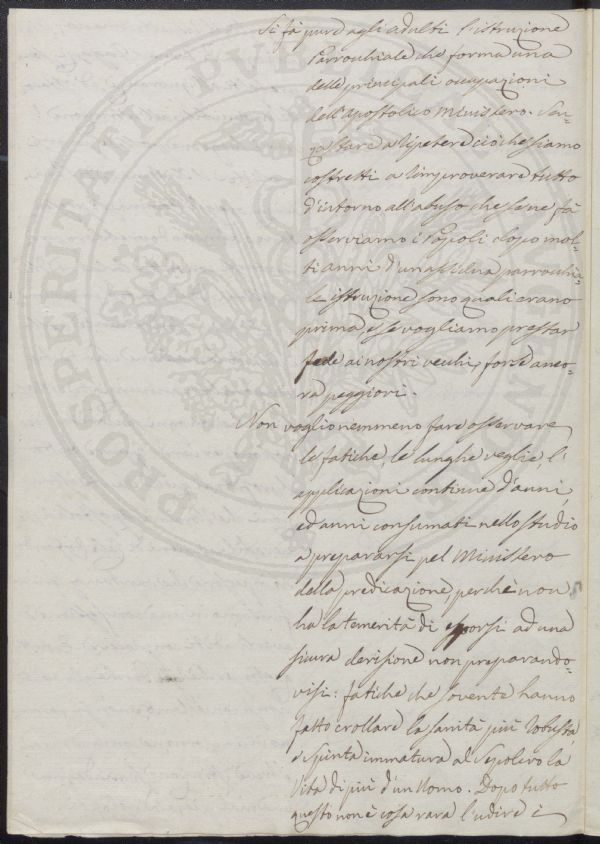 Si fà pure agli adulti l'istruzione
Parrochiale che forma una
delle principali occupazioni
dell'Apostolico Ministero. Sen-
za stare a ripetere ciò che siamo
costretti a rimproverare tutto
d'intorno all'abuso che se ne fà
osserviamo i Popoli dopo mol-
ti anni d'una parrochia-
le istruzione sono quali erano
prima, e se vogliamo prestar
fede ai nostri vecchi, forse anco-
ra peggiori.
Non voglio nemmeno fare osservare
le fatiche, le lunghe veglie, l'
applicazioni continue d'anni,
ed anni consumati nello studio
a prepararsi pel Ministero
della predicazione, perchè non
ha la temerità di esporsi ad una
sicura derisione non preparando-
visi: fatiche che sovente hanno
fatto crollare la sanità più robusta,
e spinta immatura al Sepolcro la
Vita di più d'un Uomo. Dopo tutto
questo non è cosa rara l'udire i
PROSPERITATI PVB